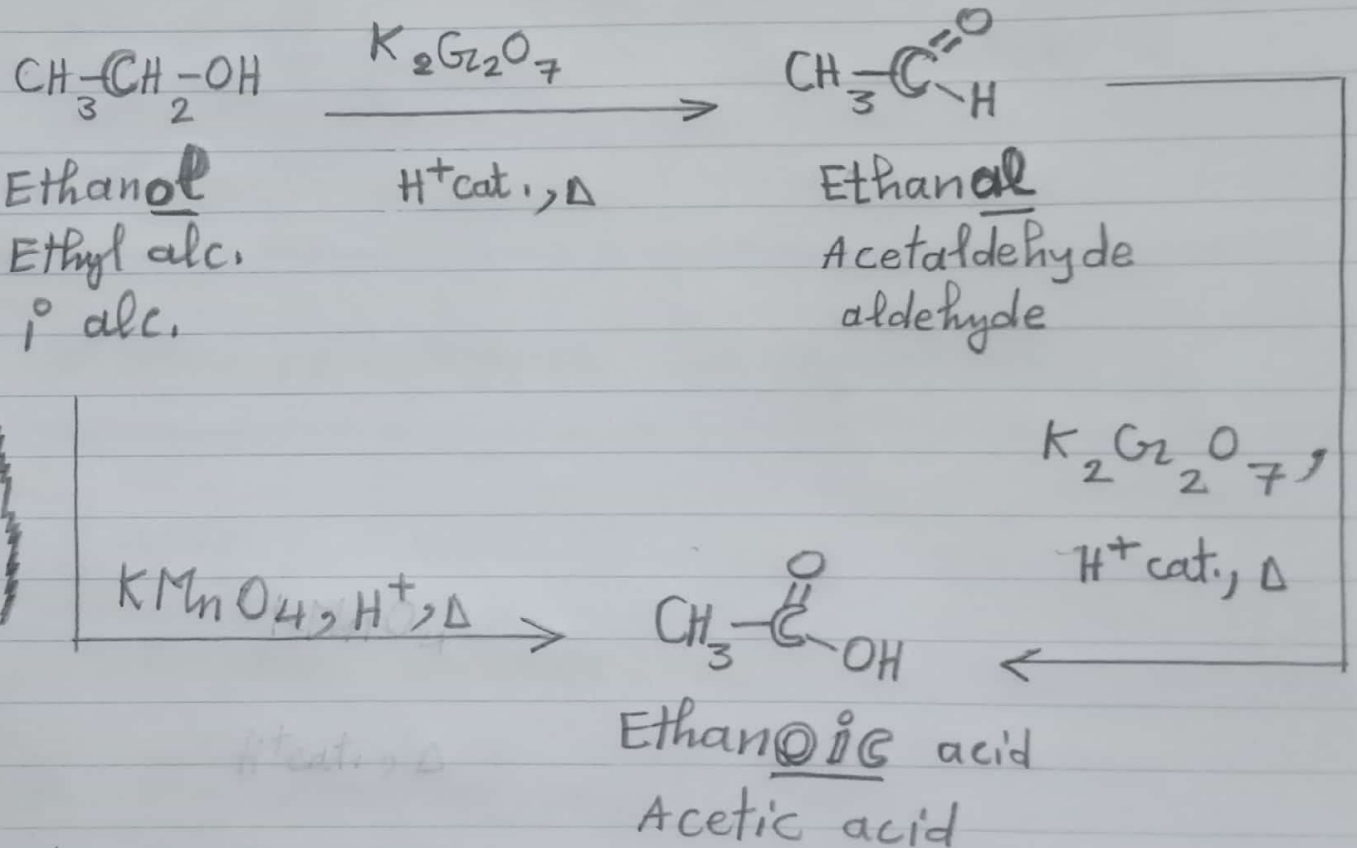 CH₃-CH₂-OH
K₂Cr₂O₇
H⁺cat., Δ
CH₃-C=O
-H
Ethanol
Ethyl alc.
1° alc.
Ethanal
Acetaldehyde
aldehyde
K₂Cr₂O₇,
H⁺cat., Δ
KMnO₄, H⁺, Δ
CH₃-C-OH
O
Ethanoic acid
Acetic acid
H⁺cat., Δ